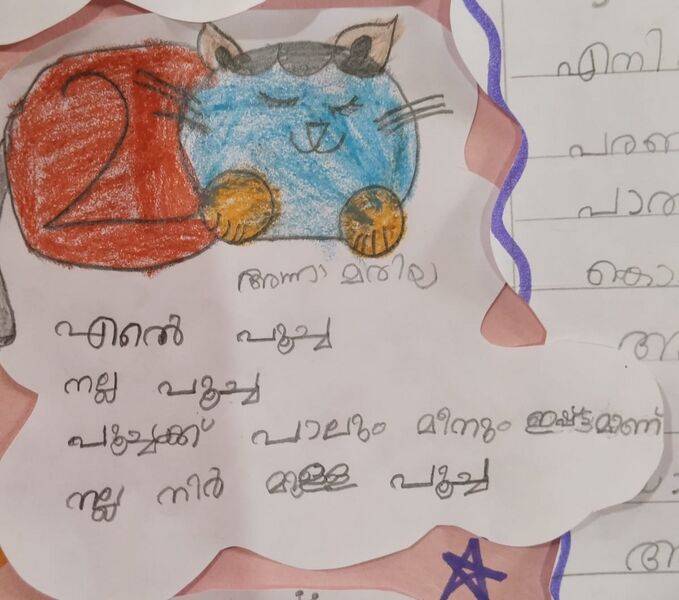 2
അന്നാ മരിയ
എൻ്റെ പൂച്ച
നല്ല പൂച്ച
പൂച്ചക്ക് പാലും മീനും ഇഷ്ടമാണ്
നല്ല നിർ മുള്ള പൂച്ച
എനി
പരണ
പാത
കൊ
അ
അ